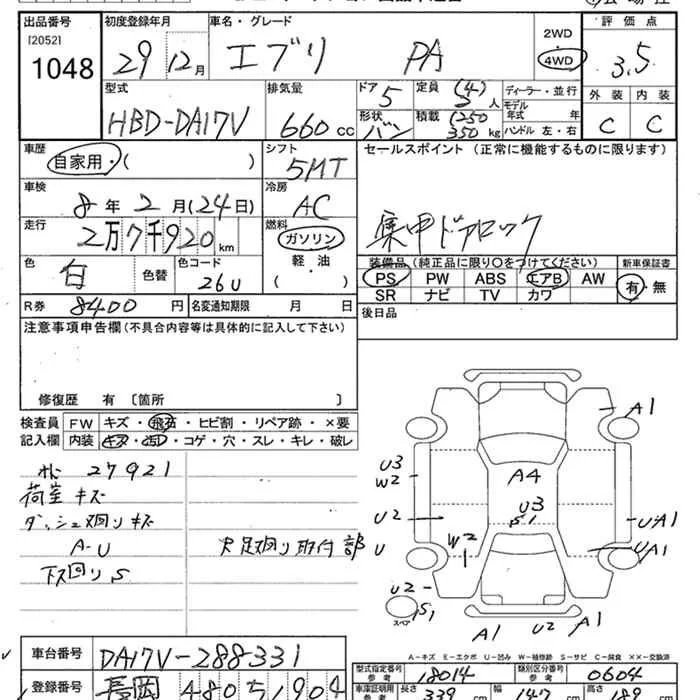 出品番号 初度登録年月 車名・グレード 2WD 評価点
[2052] 1048 29年12月 エブリ PA 4WD 3.5
型式 排気量 ドア 5 定員 (4) 人 ディーラー・並行 外装 内装
HBD-DA17V 660cc 形状 バン 積載 (250 350kg モデル年式 年 ハンドル 左・右 C C
車歴 自家用・( ) シフト 5MT セールスポイント (正常に機能するものに限ります)
車検 8年2月(24日) 冷房 AC
走行 2万7千920km 燃料 ガソリン・軽油・( ) 集中ドアロック
色 白 色替 色コード 26U 装備品 (純正品に限り○をつけてください) 新車保証書
PS PW ABS エアB AW 有・無
R券 8400円 名変通知期限 月 日 SR ナビ TV カワ
注意事項申告欄 (不具合内容等は具体的に記入して下さい) 後日品
修復歴 有 〔箇所 〕
検査員 FW キズ・飛石・ヒビ割・リペア跡・×要
記入欄 内装 キズ・汚・コゲ・穴・スレ・キレ・破レ
27921
荷室キズ
ダッシュ廻りキズ
A-U
下廻りS
足廻り取付部
A1
U3
W2
A4
U3
S1
U2
U-A1
U
W2
1
UA1
U2
S1
スペア
A1 U2 A1
A-キズ E-エクボ U-凹み W-補修跡 S-サビ C-腐食 XX-交換済
車台番号 DA17V-288331
登録番号 長岡 480 ち 1904
型式指定番号 参考 18014 類別区分番号 参考 0604
車庫証明用 参考 長さ 339cm 幅 147cm 高さ 189